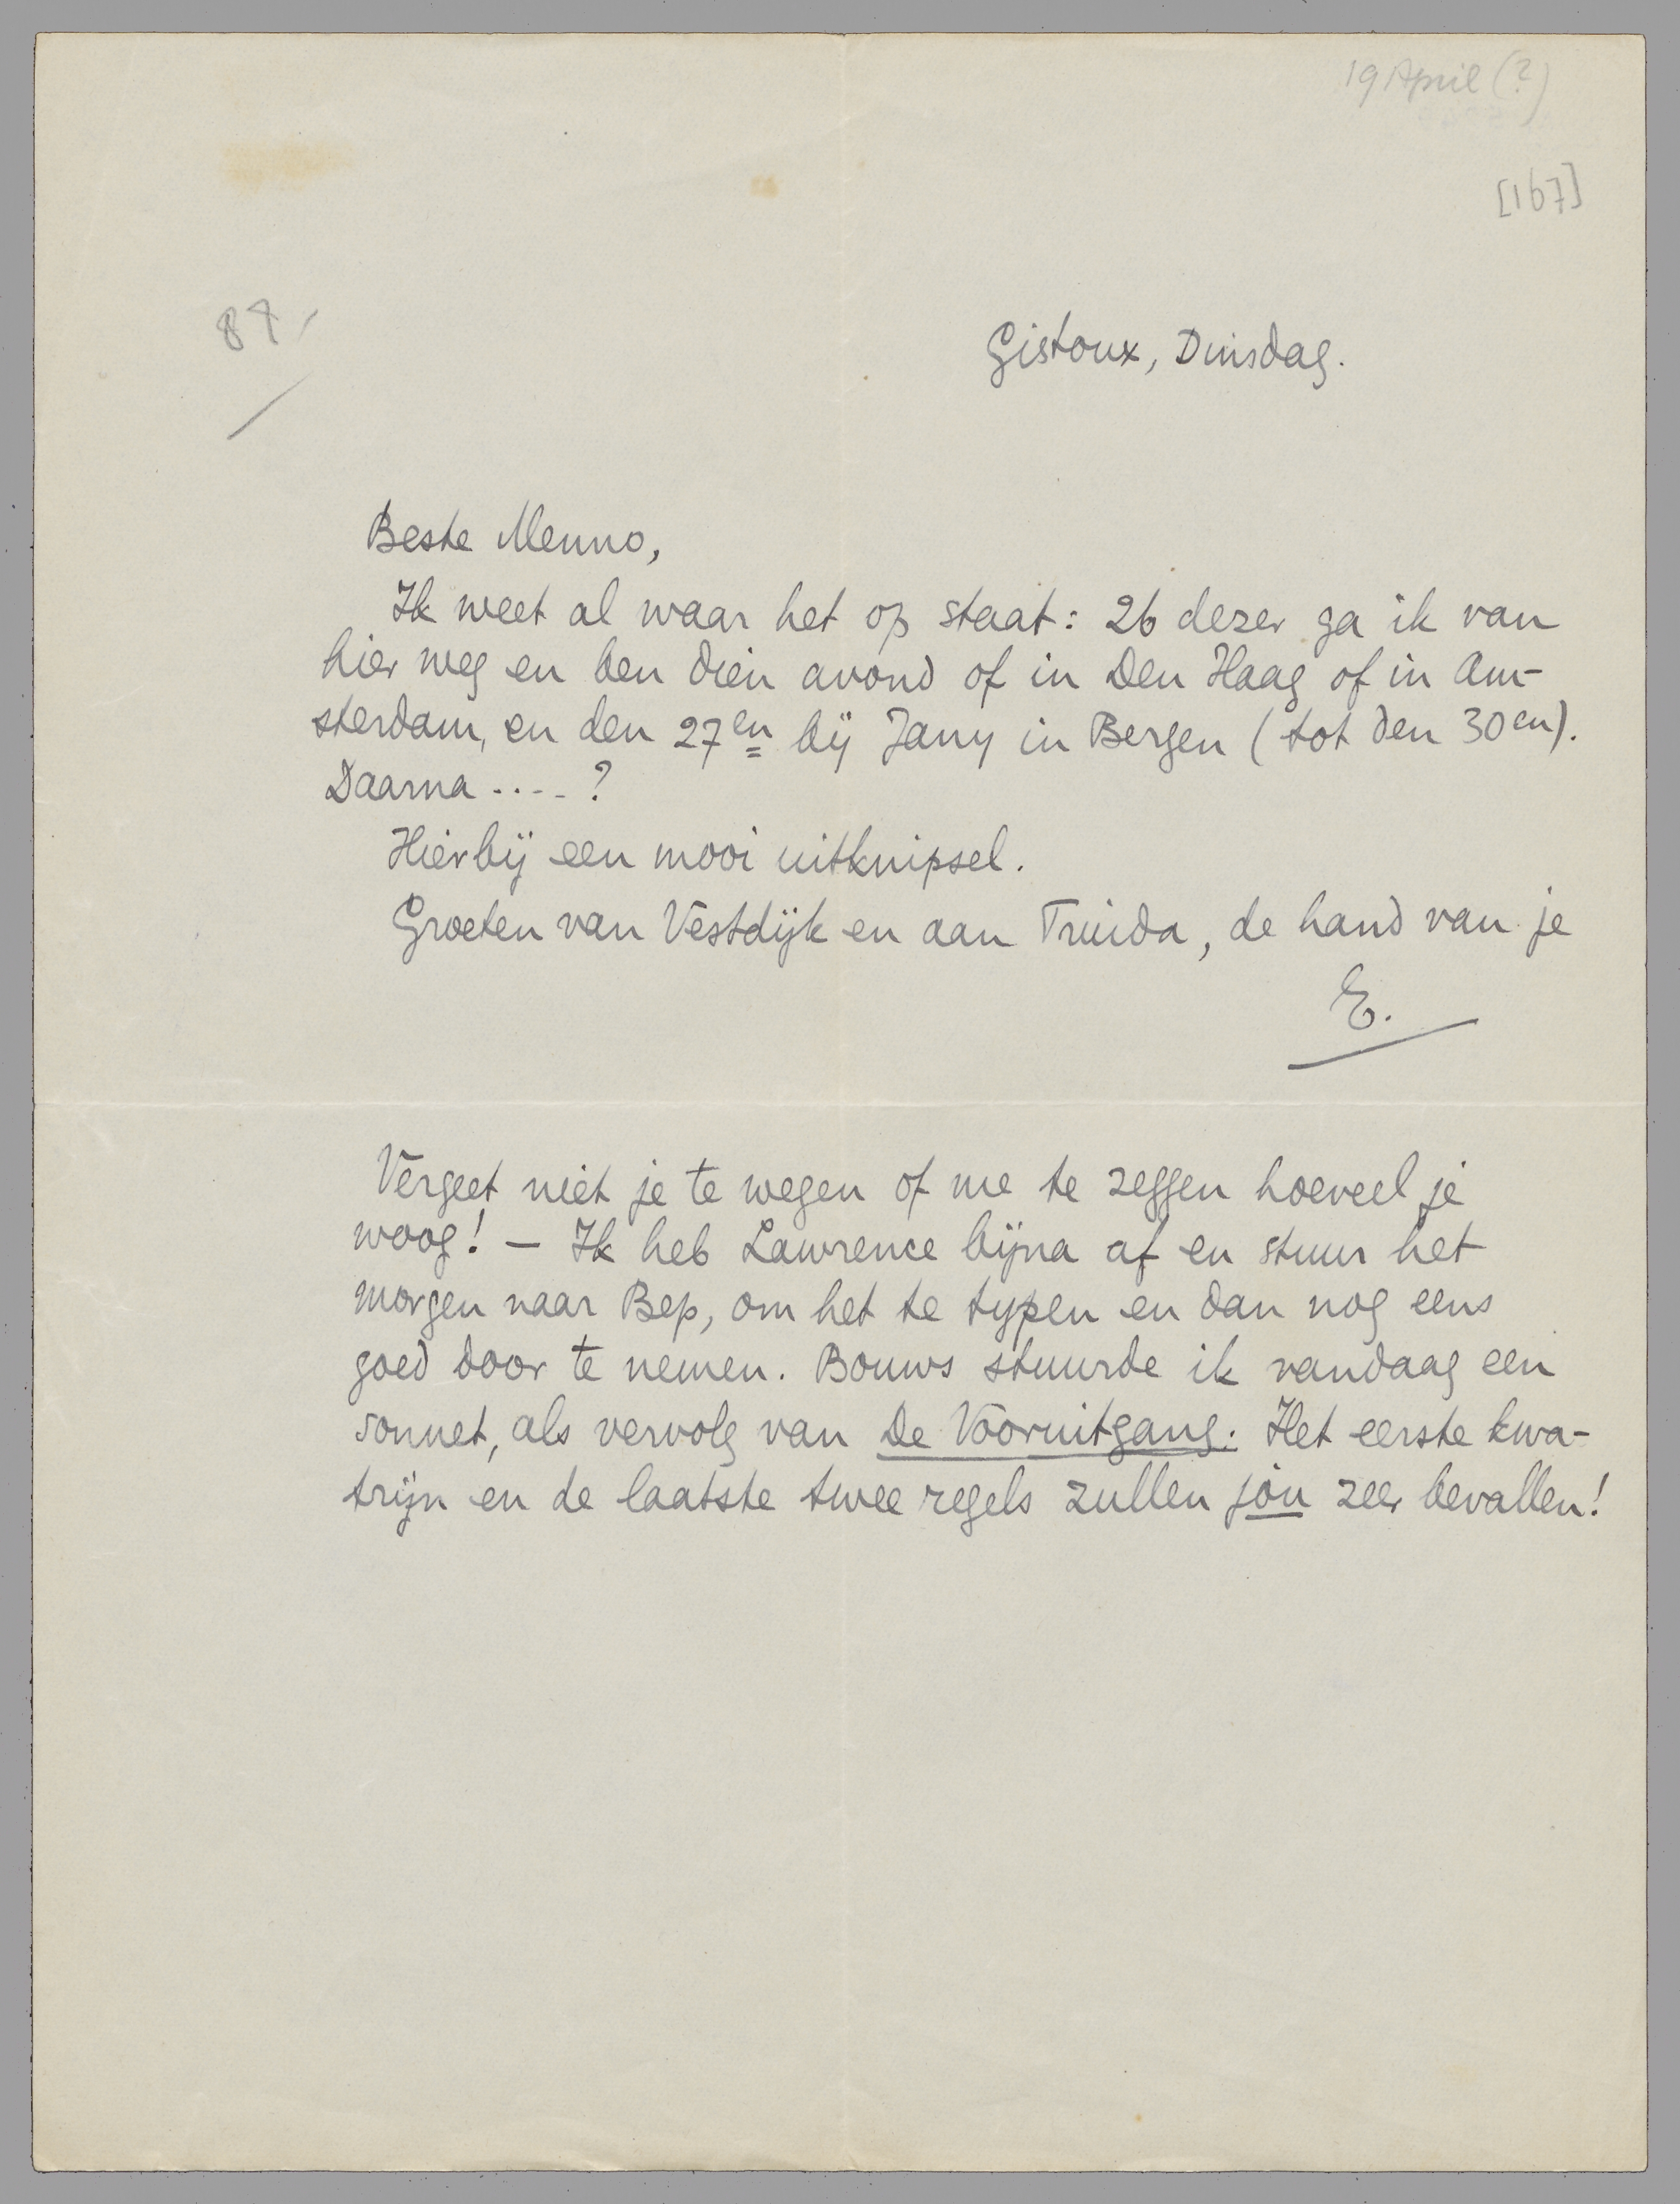 19 April (?)
[167]
87,
Gistoux, Dinsdag.
Beste Menno,
Ik weet al waar het op staat: 26 dezer ga ik van
hier weg en ben dien avond of in Den Haag of in Am-
sterdam, en den 27en bij Jany in Bergen (tot den 30en).
Daarna ....?
Hierbij een mooi uitknipsel.
Groeten van Vestdijk en aan Truida, de hand van je
E.
Vergeet niet je te wegen of me te zeggen hoeveel je
woog! – Ik heb Lawrence bijna af en stuur het
morgen naar Bep, om het te typen en dan nog eens
goed door te nemen. Bouws stuurde ik vandaag een
sonnet, als vervolg van De Vooruitgang. Het eerste kwa-
trijn en de laatste twee regels zullen jòu zeer bevallen!